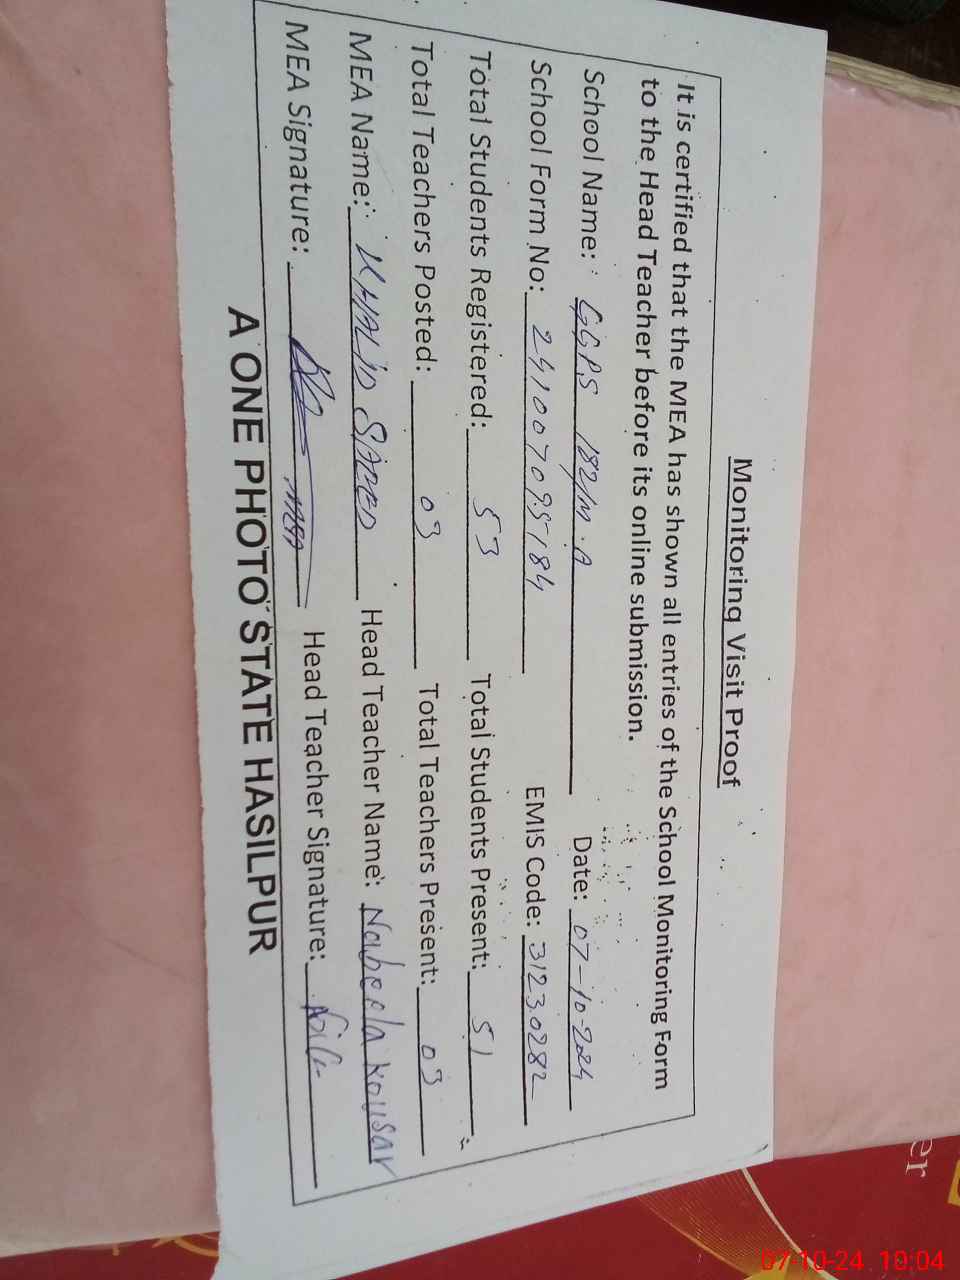 Monitoring Visit Proof
It is certified that the MEA has shown all entries of the School Monitoring Form
to the Head Teacher before its online submission.
School Name: GGPS 182/M.A Date: 07-10-2024
School Form No: 241007095184 EMIS Code: 31230282
Total Students Registered: 53 Total Students Present: 51
Total Teachers Posted: 03 Total Teachers Present: 03
MEA Name: KHALID SAEED Head Teacher Name: Nabeela Kousar
MEA Signature: MEA Head Teacher Signature:
A ONE PHOTO STATE HASILPUR
er
07-10-24 10:04